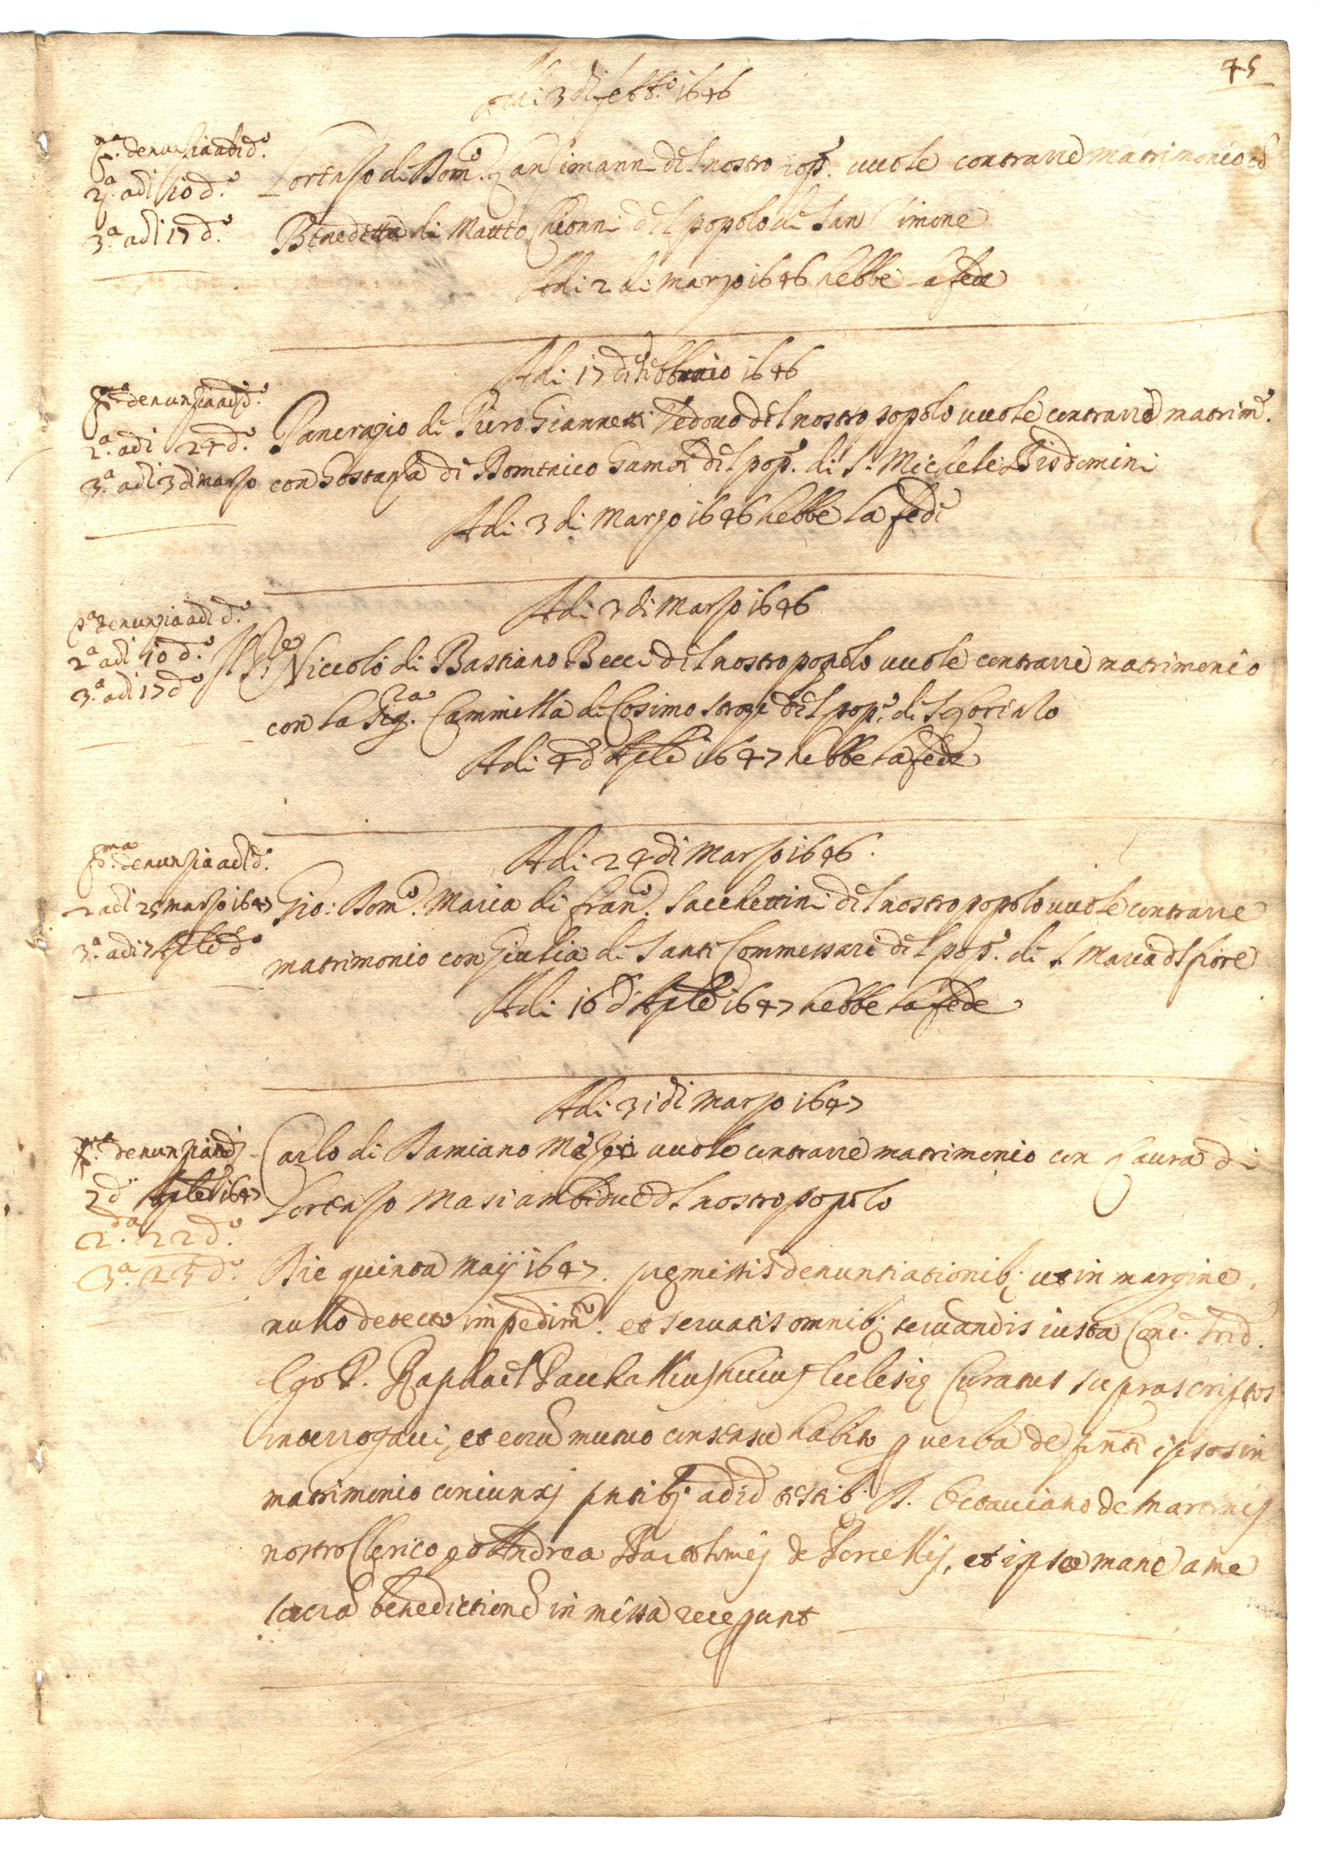 45
Adi 3 di febb.o 1646
p.a denunzia adi d.o
2.a adi 10 d.o
3.a adi 17 d.o
Lorenzo di Dom.o del nostro pop.o vuole contrarre matrimonio
Benedetta di Matteo del popolo di San Simone
Adi 2 di Marzo 1646 hebbe la fede
Adi 17 di febbraio 1646
p.a denunzia adi d.o
2.a adi 24 d.o
3.a adi 3 di marzo
Pancrazio di Piero Giannetti Vedovo del nostro popolo vuole contrarre matrim.o
con Gostanza di Domenico del pop.o di S. Michele Bisdomini
Adi 3 di Marzo 1646 hebbe la fede
Adi 3 di Marzo 1646
p.a denunzia adi d.o
2.a adi 10 d.o
3.a adi 17 d.o
Il S.re Niccolò di Bastiano Becci del nostro popolo vuole contrarre matrimonio
con la Sig.ra Cammilla di Cosimo del pop.o di
Adi 4 d'Aple 1647 hebbe la fede
Adi 24 di Marzo 1646.
p.ma denunzia adi d.o
2 adi 25 marzo 1647
3.a adi Aple d.o
Gio: Dom.o Maria di Fran.o Sacchettini del nostro popolo vuole contrarre
matrimonio con Giulia di Santi Commessari del pop.o di S. Maria del fiore
Adi 16 d'Aple 1647 hebbe la fede
Adi 31 di Marzo 1647
p.ma denunzia adi
2 d'Aple 1647
2.da 22 d.o
3.a 25 d.o
Carlo di Damiano vuole contrarre matrimonio con Laura di
Lorenzo Masi ambidue del nostro popolo
Die quinta Maij 1647. premissis denuntiationib; ut in margine,
nullo detecto impedim.to et servatis omnib; servandis iusta Conc. Trid.
Ego P. Raphael huius Ecclesię Curatus suprascriptos
interrogavi, et eorũ mutuo consensu habito p verba de pñti ipsos in
matrimonio coniunxi pñtib; ad id testib; D. Octaviano de Martinis
nostro Clerico et Andrea Bartholomei de Porcellis, et ipso mane a me
sacrã benedictionẽ in missa receperunt